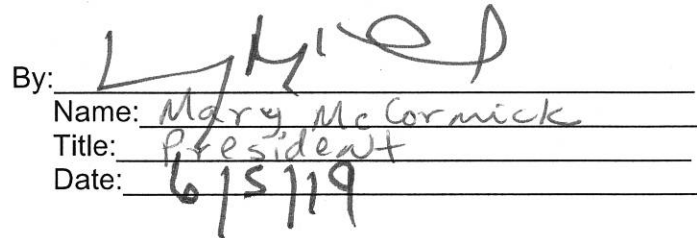 By:
Name: Mary McCormick
Title: President
Date: 6/5/19